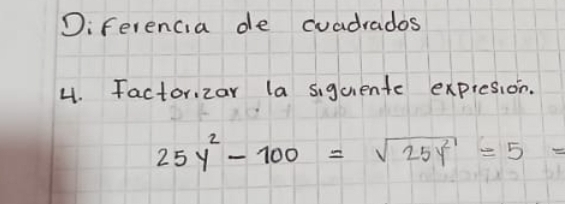 Diferencia de cuadrados
4. Factorizar la siguiente expresión.
25y² - 100 = √25y² = 5 =